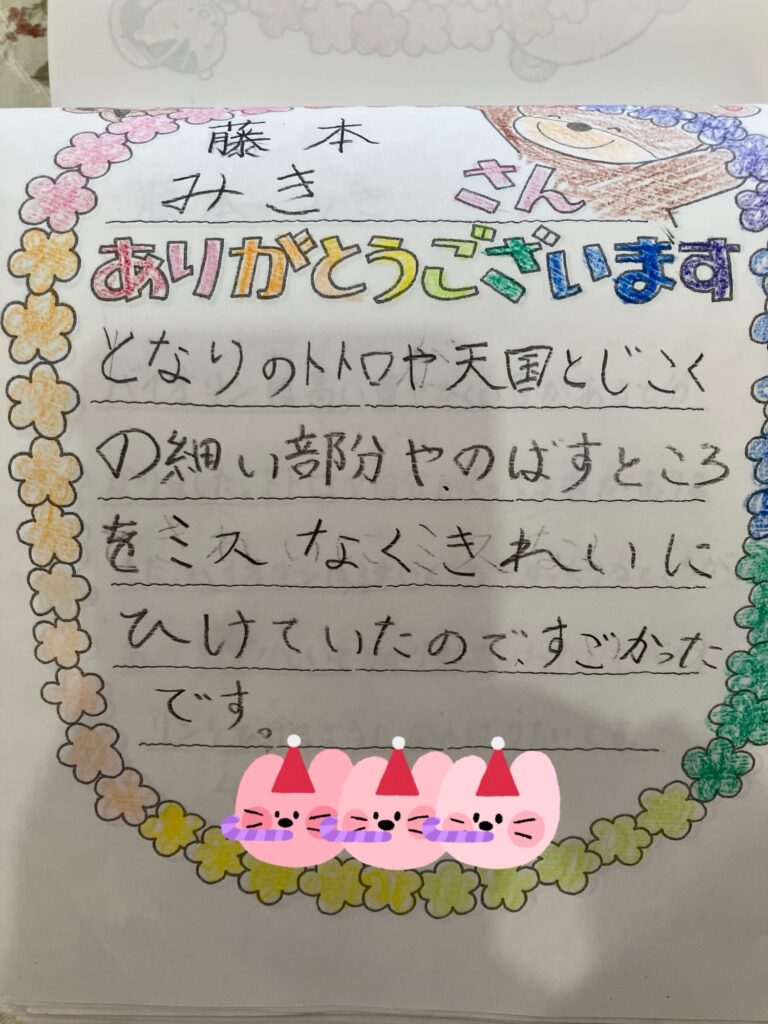 藤本
みき さん
ありがとうございます
となりのトトロや天国とじごく
の細い部分や、のばすところ
をミスなくきれいに
ひけていたので、すごかった
です。